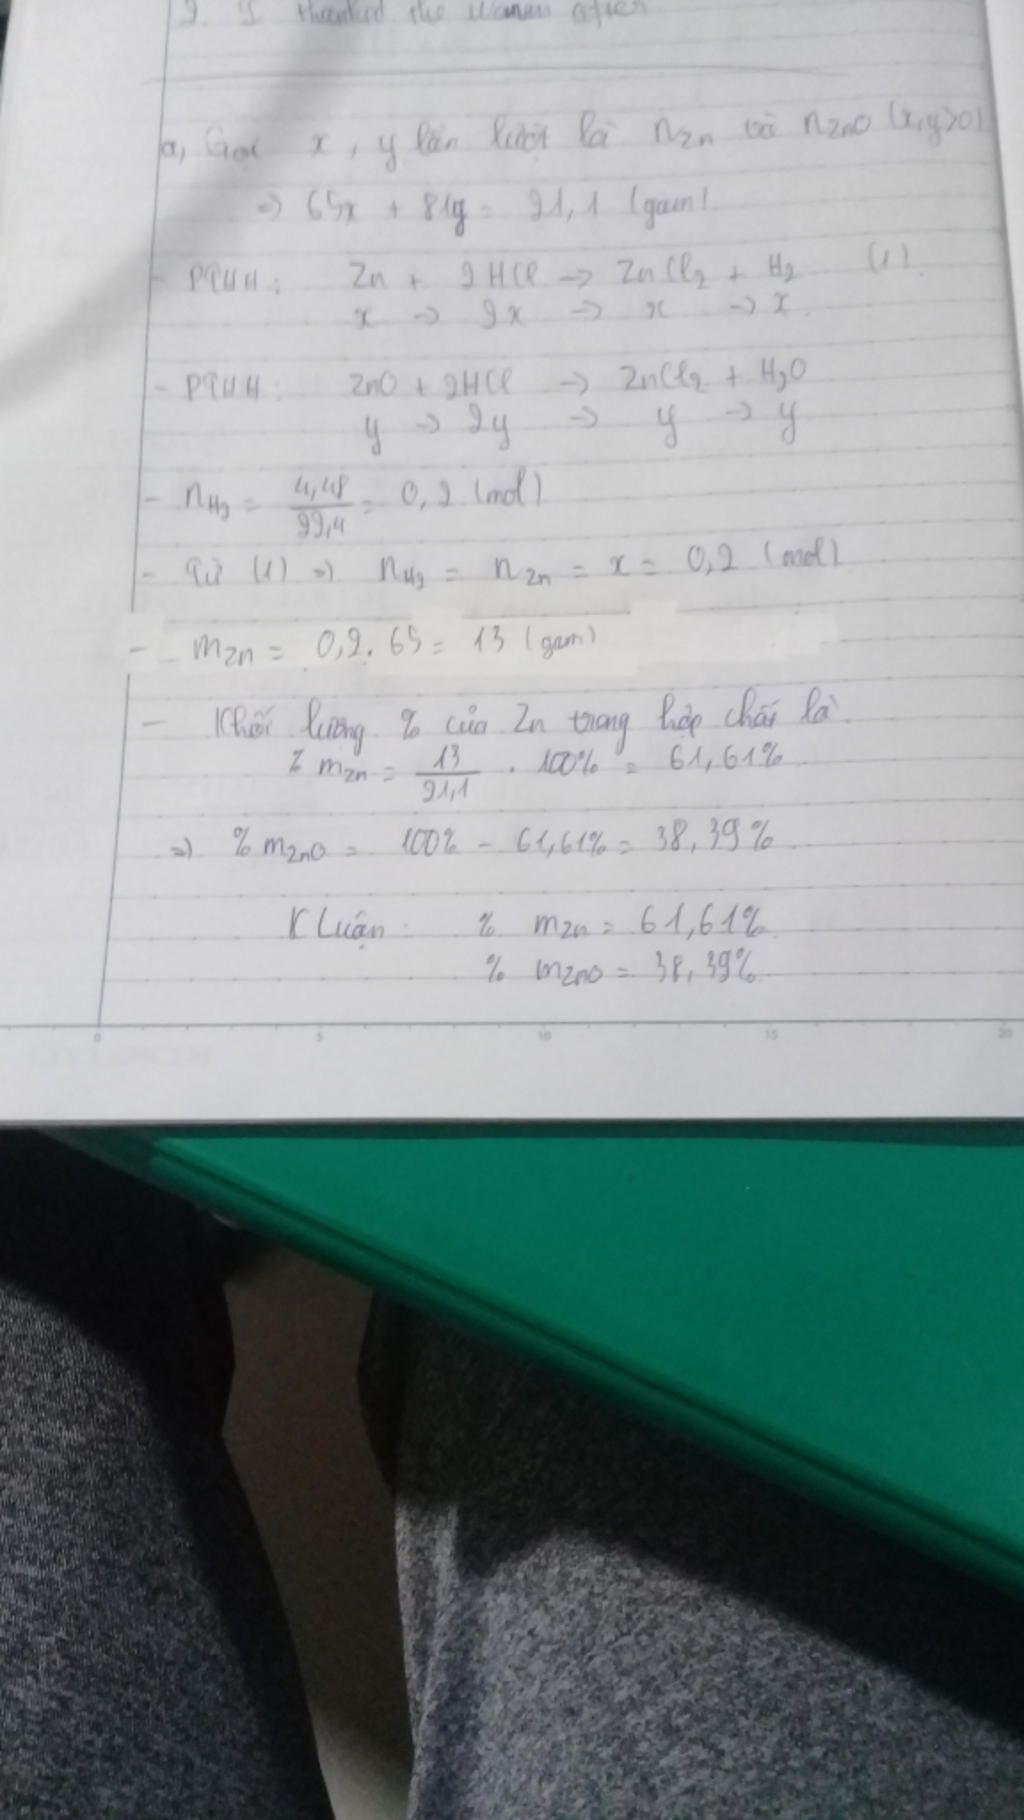 9. I thanked the woman after
a, Gọi x, y lần lượt là nZn và nZnO (x,y>0)
=> 65x + 81y = 21,1 (gam)
- PTHH: Zn + 2HCl -> ZnCl2 + H2 (1)
x -> 2x -> x -> x
- PTHH: ZnO + 2HCl -> ZnCl2 + H2O
y -> 2y -> y -> y
- nH2 = 4,48/22,4 = 0,2 (mol)
- Từ (1) => nH2 = nZn = x = 0,2 (mol)
- mZn = 0,2. 65 = 13 (gam)
- Khối lượng % của Zn trong hợp chất là
% mZn = 13/21,1 . 100% = 61,61%
=> % mZnO = 100% - 61,61% = 38,39%
K Luận: % mZn = 61,61%
% mZnO = 38,39%
0 5 10 15 20